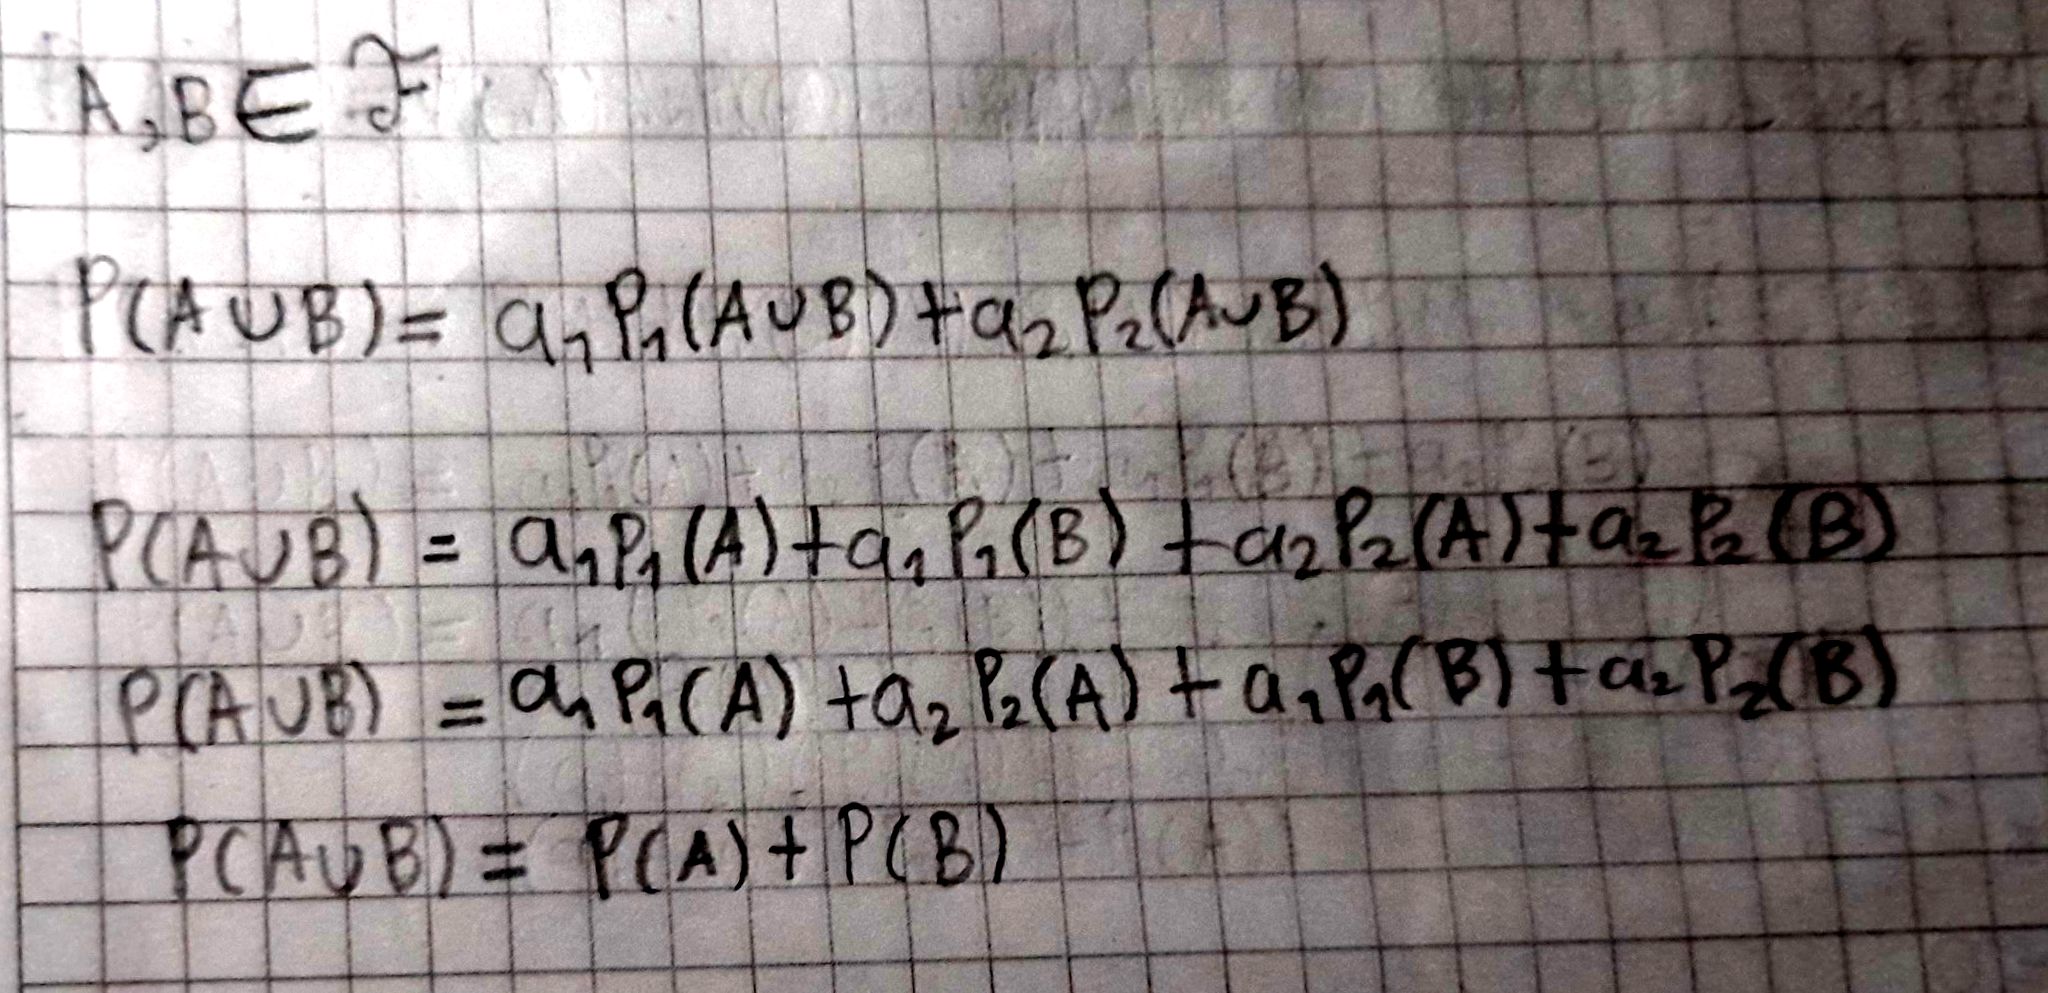 A, B ∈ ℱ
P(A∪B) = a₁P₁(A∪B) + a₂P₂(A∪B)
P(A∪B) = a₁P₁(A) + a₁P₁(B) + a₂P₂(A) + a₂P₂(B)
P(A∪B) = a₁P₁(A) + a₂P₂(A) + a₁P₁(B) + a₂P₂(B)
P(A∪B) = P(A) + P(B)